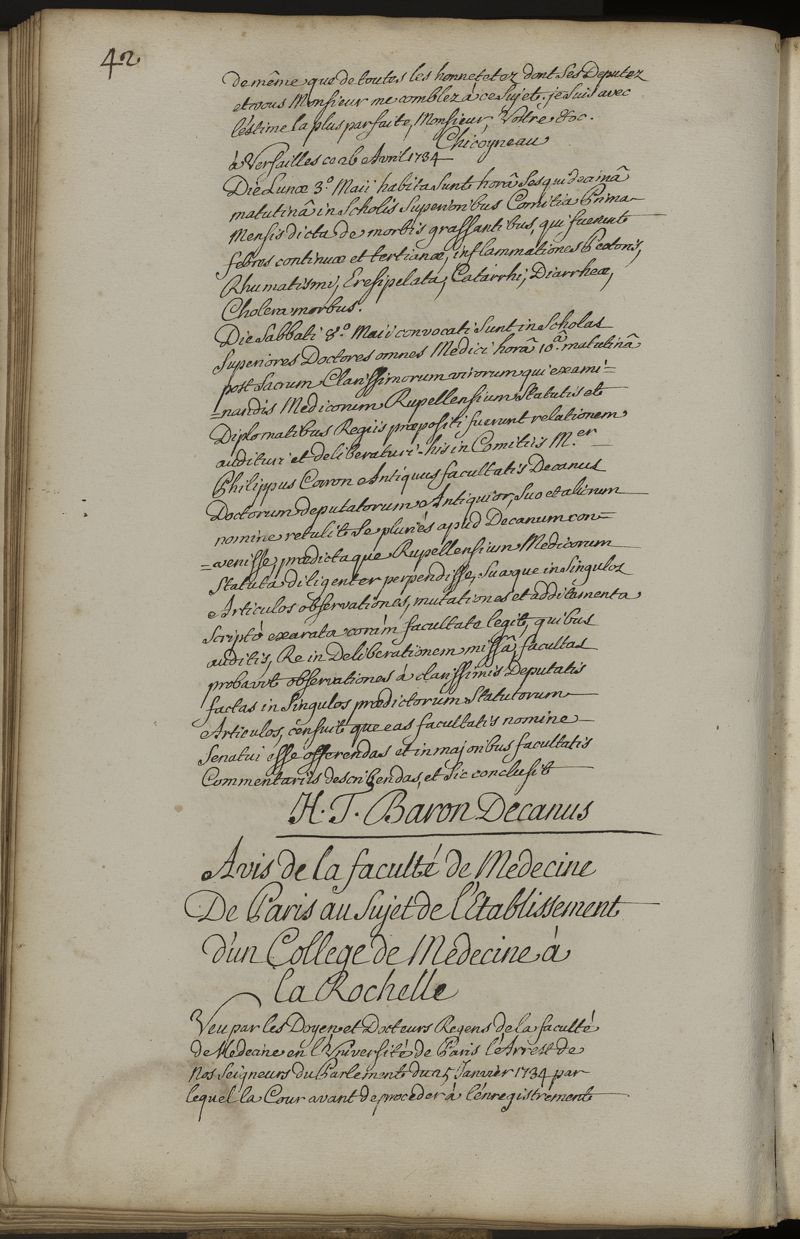 42
de même que de toutes les honnetetez dont Ses Deputez
et vous Monsieur me comblez à ce Sujet. je suis avec
l'éstime la plus parfaite, Monsieur Vôtre &c.
Chicoyneau
à Versailles ce 26 Avril 1734
Die Lunæ 3.° Maii habita Sunt horâ Sesqui decimâ
matutinâ in Scholis Superioribus Comitia Prima
Mensis dicta de morbis grassantibus, qui fuerunt
febres continuæ et tertianæ, inflammationes Pectoris,
Rhumatismi, Eresipelata, Catarrhi, Diarrheæ,
Cholera morbus.
Die Sabbati 8.° Maii convocati Sunt in Scholas
Superiores Doctores omnes Medici horâ 10.ª matutinâ
post Sacrum Clarissimorum virorum qui exami=
=nandis Medicorum Rupellensium Statutis et
Diplomatibus Regiis præpositi fuerunt relationem
audituri et deliberaturi. his in Comitiis M.er
Philippus Caron Antiquus facultatis Decanus
Doctorum deputatorum Antiquior, Suo et aliorum
nomine retulit Se pluriés apud Decanum con=
=venisse, prædictaque Rupellensium Medicorum
Statuta diligenter perpendisse, Suaque in Singulos
Articulos observationes, mutationes et additamenta
Scriptó exarata coràm facultate legit, quibus
auditis, Re in Deliberationem missâ, facultas
probavit observationes á clarissimis Deputatis
factas in Singulos prædictorum Statutorum
Articulos, censuit que eas facultatis nomine
Senatui esse offerendas et in majoribus facultatis
Commentariis describendas, et Sic conclusit
H. T. Baron Decanus
Avis de la faculté de Medecine
De Paris au Sujet de l'Etablissement
d'un College de Medecine à
la Rochelle
Veu par les Doyen et Docteurs Regens de la faculté
de Medecine en l'Université de Paris l'Arrest de
Nos Seigneurs du Parlement du 25 Janvier 1734 par
lequel la Cour avant de proceder à l'énregistrement